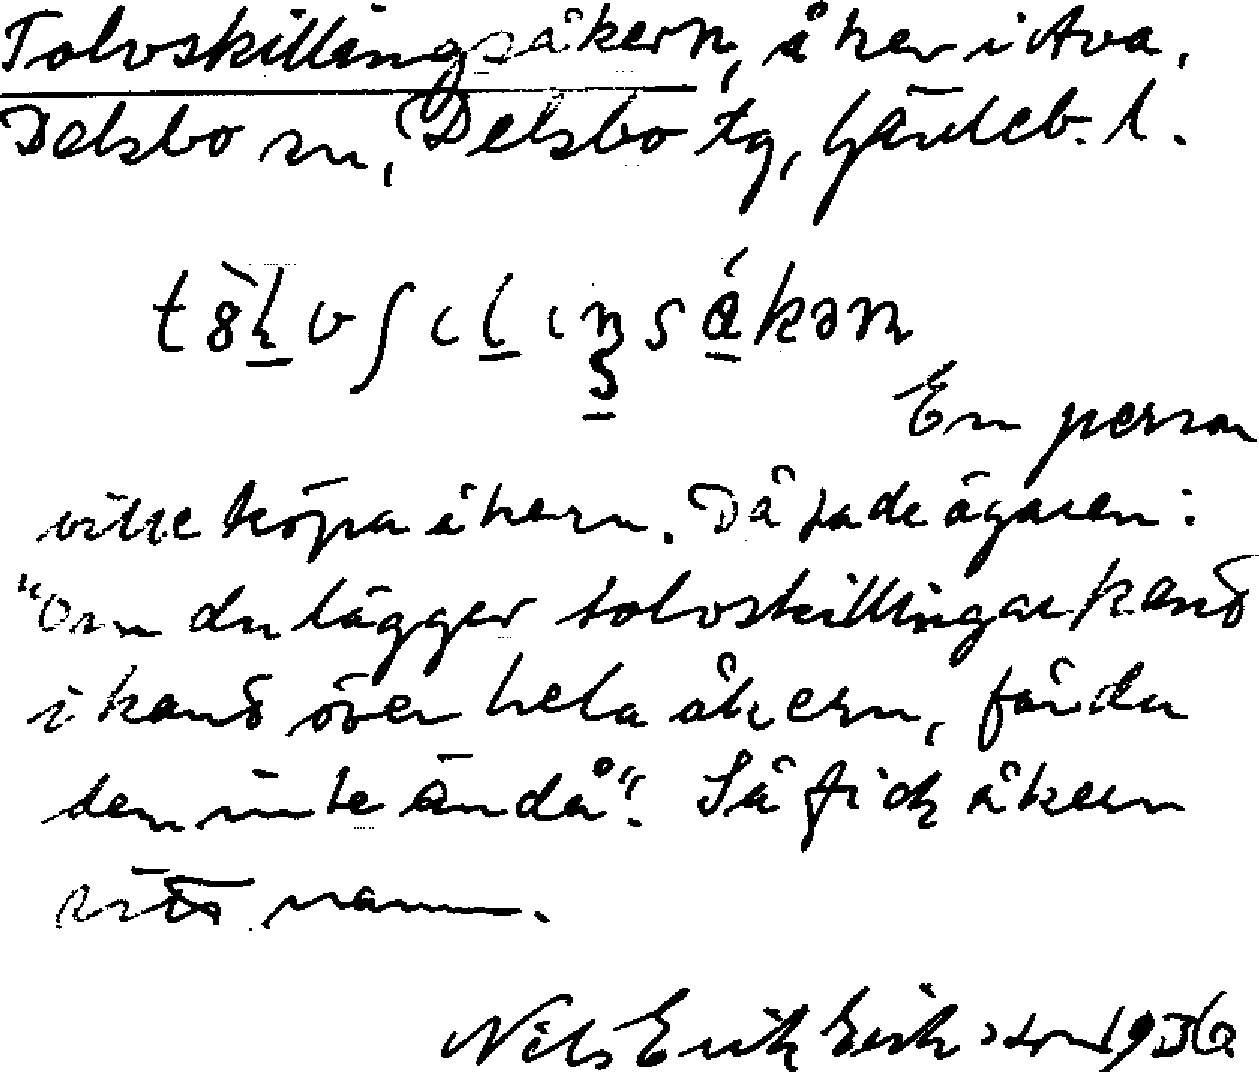 Tolvskillingsåkern, åker i Ava,
Delsbo sn, Delsbo tg, Gävleb. l.
En person
ville köpa åkern. Då sade ägaren:
"Om du lägger tolvskillingar kant
i kant över hela åkern, får du
den inte ändå". Så fick åkern
sitt namn.
Nils Erik Eriksson 1936